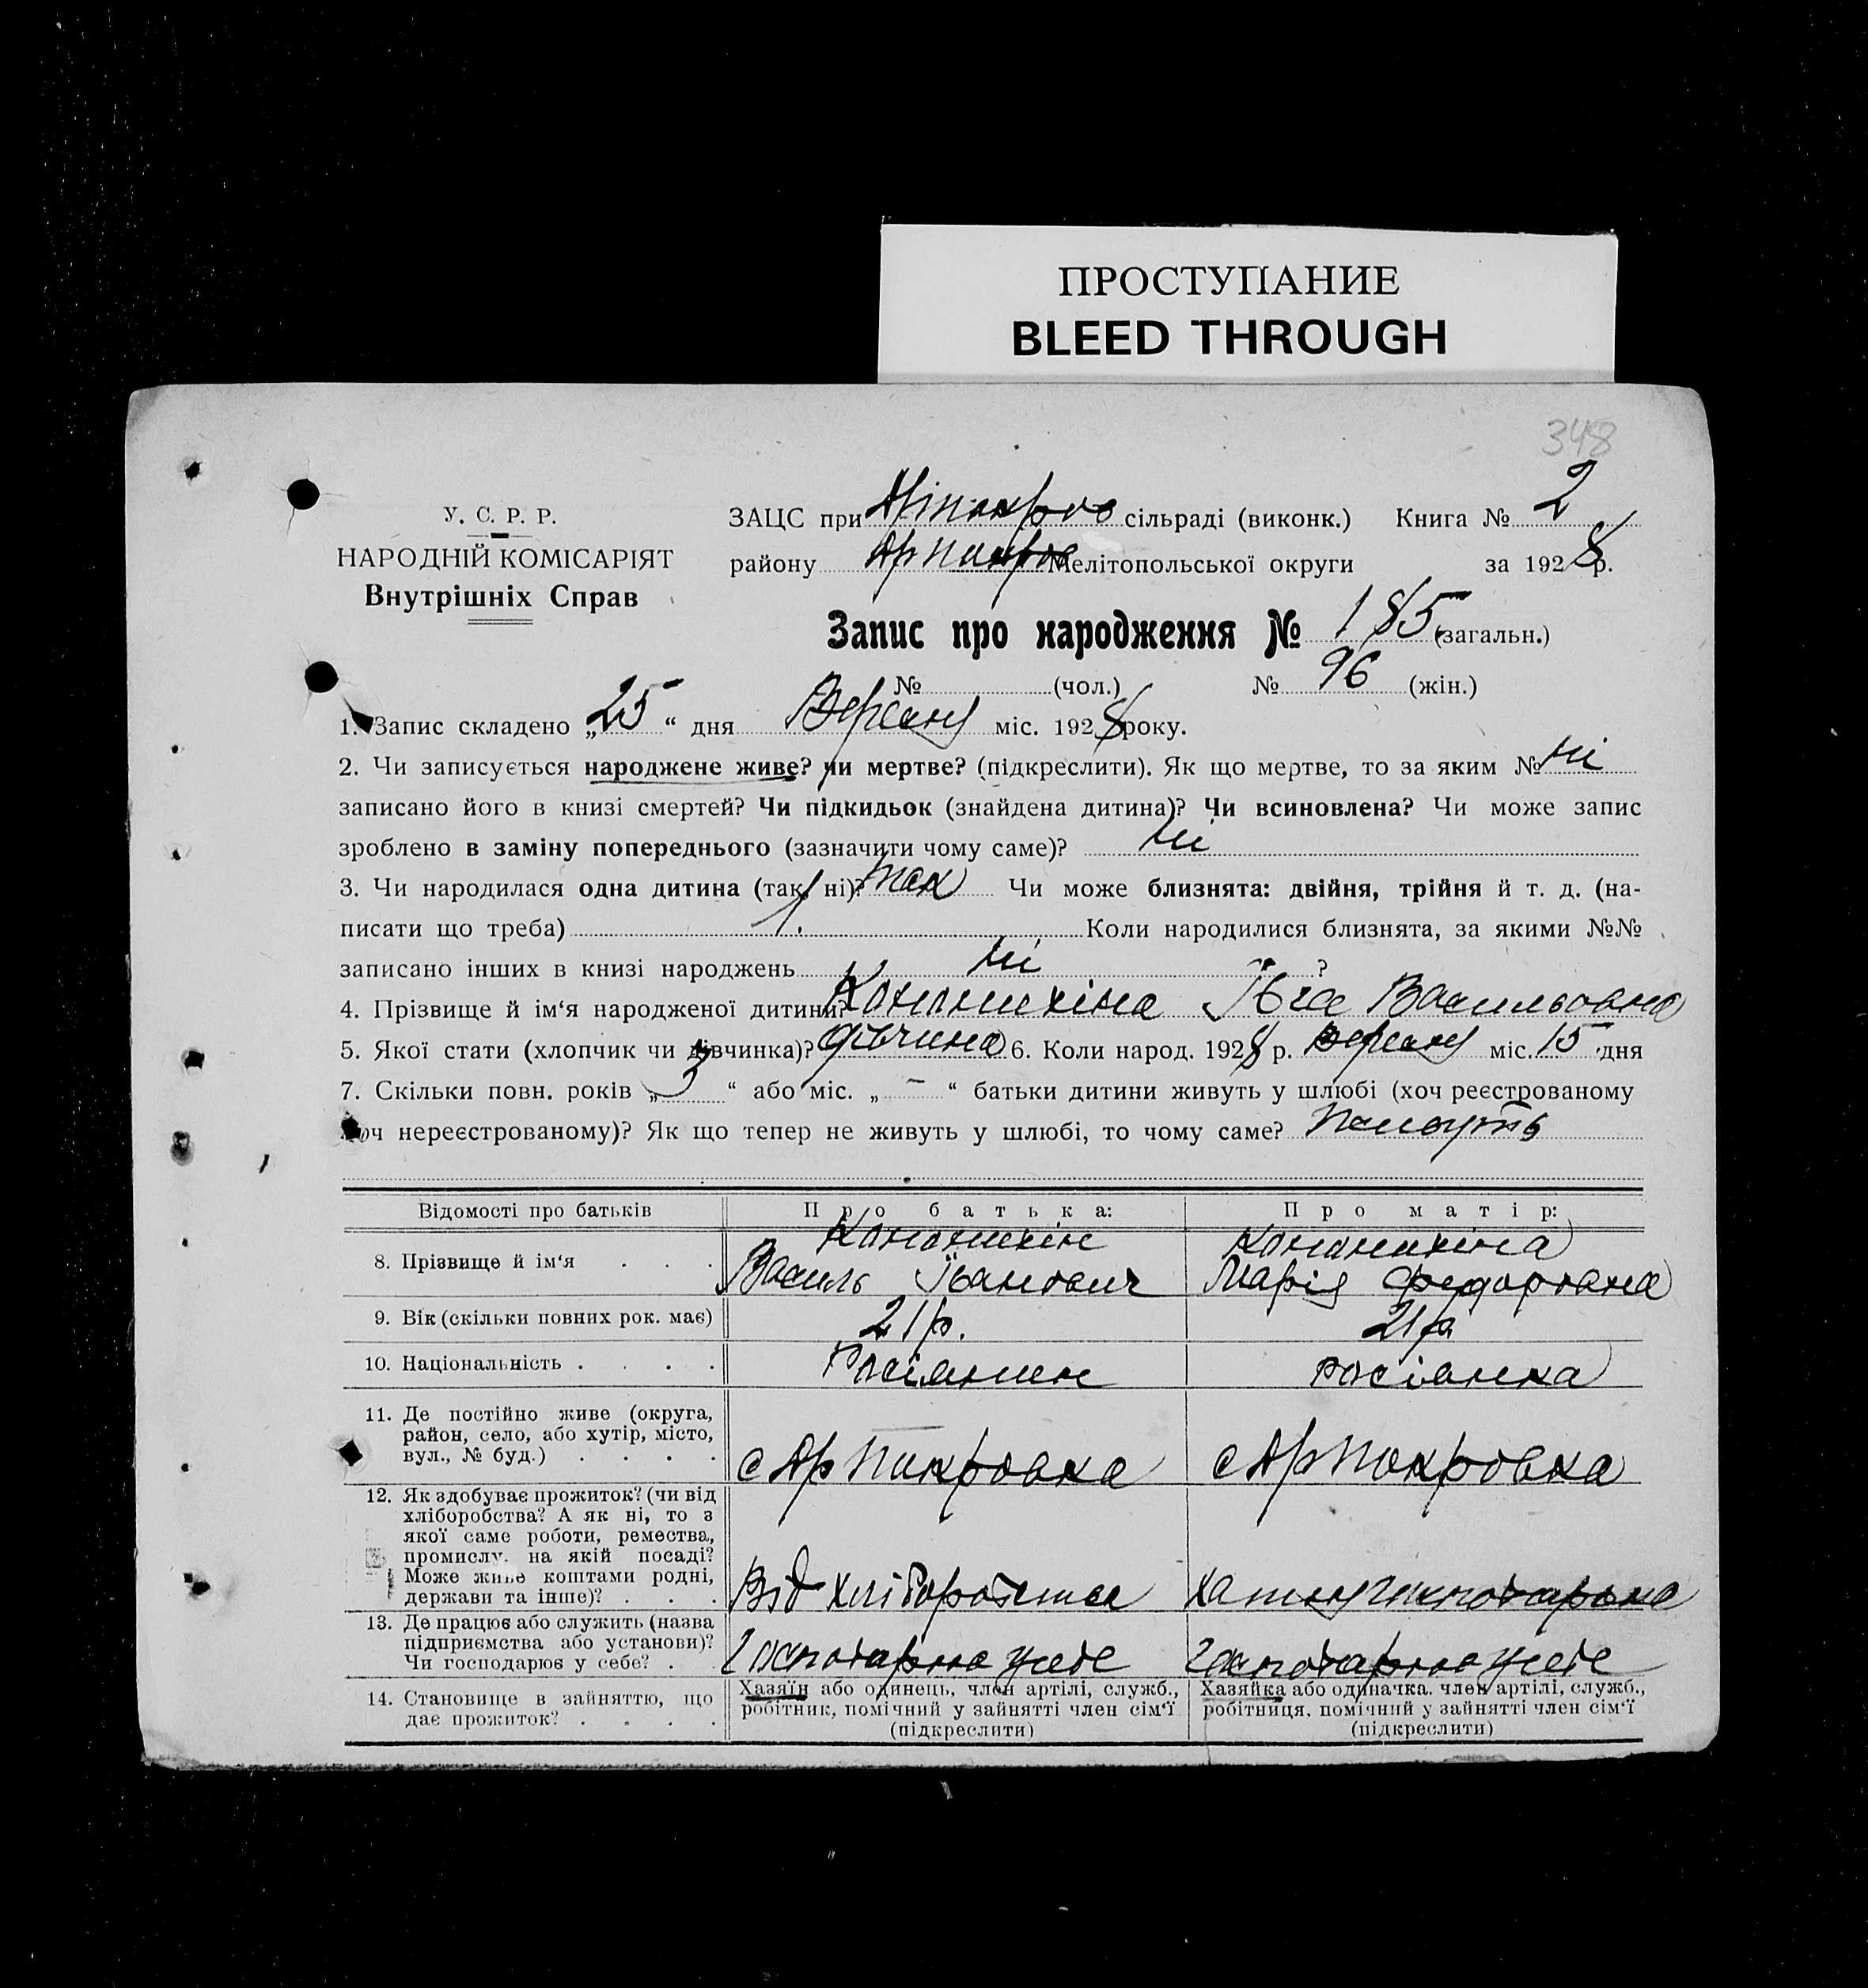 ПРОСТУПАНИЕ
BLEED THROUGH
348
У. С. Р. Р.
НАРОДНІЙ КОМІСАРІЯТ
Внутрішніх Справ
ЗАЦС при сільраді (виконк.) Книга № 2
району Мелітопольської округи за 1928 р.
Запис про народження № 185 (загальн.)
№ (чол.) № 96 (жін.)
1. Запис складено „25“ дня Вересня міс. 1928 року.
2. Чи записується народжене живе? чи мертве? (підкреслити). Як що мертве, то за яким № ні
записано його в книзі смертей? Чи підкидьок (знайдена дитина)? Чи всиновлена? Чи може запис
зроблено в заміну попереднього (зазначити чому саме)? ні
3. Чи народилася одна дитина (так, ні)? так Чи може близнята: двійня, трійня й т. д. (на-
писати що треба) 1. Коли народилися близнята, за якими №№
записано інших в книзі народжень ні ?
4. Прізвище й ім‘я народженої дитини? Васильовна
5. Якої стати (хлопчик чи дівчинка)? дівчина 6. Коли народ. 1928 р. Вересня міс. 15 дня
7. Скільки повн. років „3“ або міс. „-“ батьки дитини живуть у шлюбі (хоч реєстрованому
хоч нереєстрованому)? Як що тепер не живуть у шлюбі, то чому саме?
Відомості про батьків Про батька: Про матір:
8. Прізвище й ім‘я . . .
Василь Іванович Марія Федоровна
9. Вік (скільки повних рок. має) 21 р. 21 р
10. Національність . . . . Росіянин росіянка
11. Де постійно живе (округа,
район, село, або хутір, місто,
вул., № буд.) . . . . с Ар Покровка с Ар Покровка
12. Як здобуває прожиток? (чи від
хліборобства? А як ні, то з
якої саме роботи, ремества,
промислу. на якій посаді?
Може живе коштами родні,
держави та інше)? . . . Від хліборобства
13. Де працює або служить (назва
підприємства або установи)?
Чи господарює у себе? .
14. Становище в зайняттю, що
дає прожиток? . . . .
Хазяїн або одинець, член артілі, служб.,
робітник, помічний у зайнятті член сім‘ї
(підкреслити)
Хазяйка або одиначка. член артілі, служб.,
робітниця, помічний у зайнятті член сім‘ї
(підкреслити)